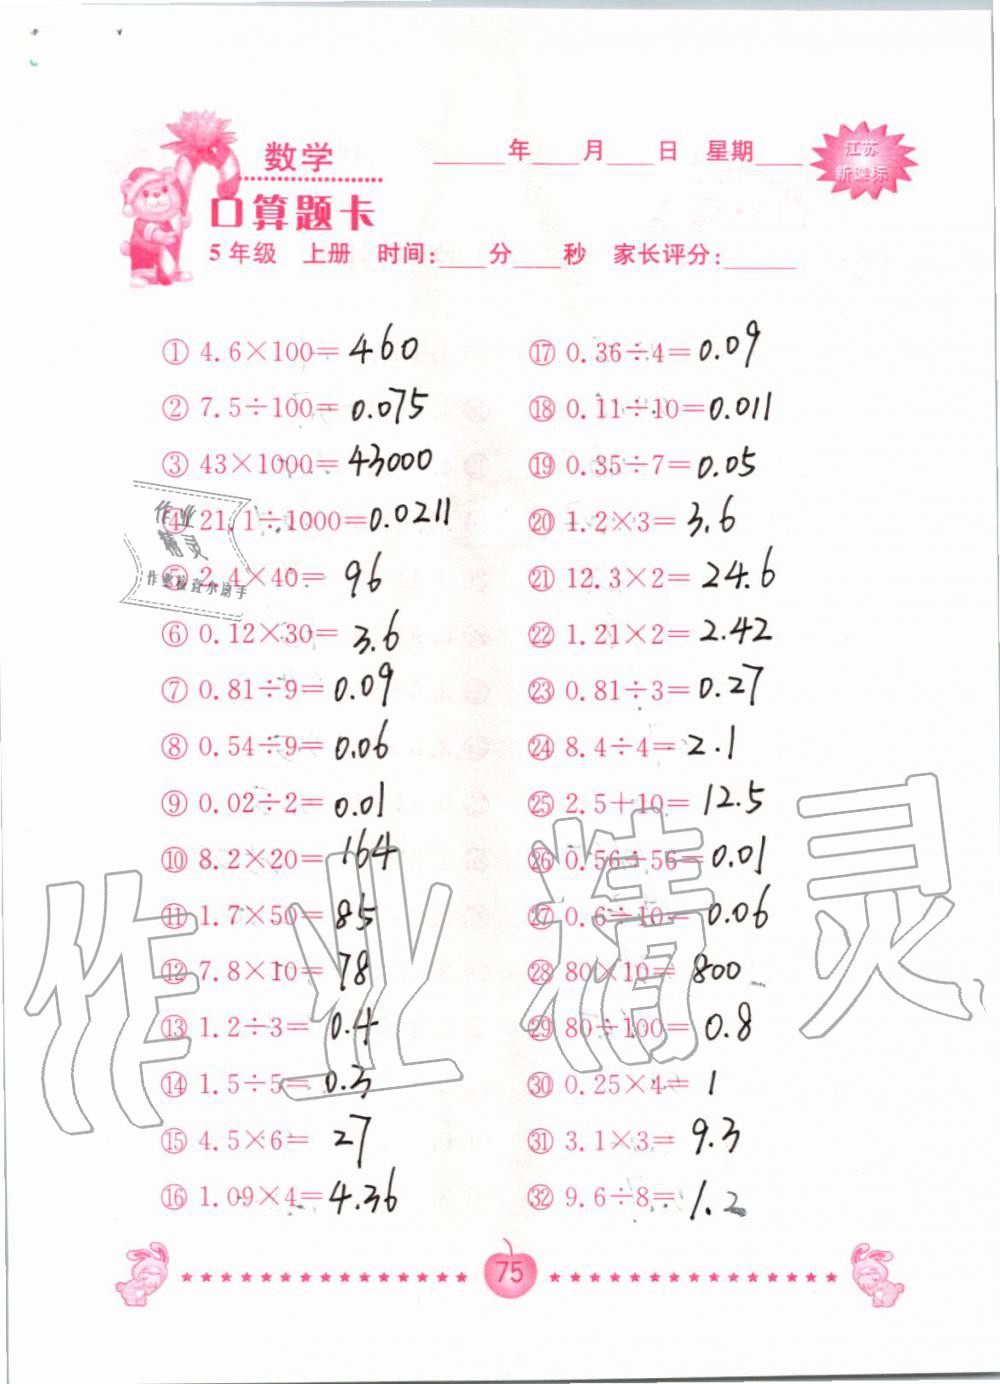 数学
____年____月____日 星期____
江苏
新课标
口算题卡
5年级 上册 时间:____分____秒 家长评分:____
① 4.6×100=460
② 7.5÷100=0.075
③ 43×1000=43000
④ 21.1÷1000=0.0211
⑤ 2.4×40=96
⑥ 0.12×30=3.6
⑦ 0.81÷9=0.09
⑧ 0.54÷9=0.06
⑨ 0.02÷2=0.01
⑩ 8.2×20=164
⑪ 1.7×50=85
⑫ 7.8×10=78
⑬ 1.2÷3=0.4
⑭ 1.5÷5=0.3
⑮ 4.5×6=27
⑯ 1.09×4=4.36
⑰ 0.36÷4=0.09
⑱ 0.11÷10=0.011
⑲ 0.35÷7=0.05
⑳ 1.2×3=3.6
㉑ 12.3×2=24.6
㉒ 1.21×2=2.42
㉓ 0.81÷3=0.27
㉔ 8.4÷4=2.1
㉕ 2.5+10=12.5
㉖ 0.56÷56=0.01
㉗ 0.6÷10=0.06
㉘ 80×10=800
㉙ 80÷100=0.8
㉚ 0.25×4=1
㉛ 3.1×3=9.3
㉜ 9.6÷8=1.2
作业
精灵
作业检查小助手
作业精灵
75